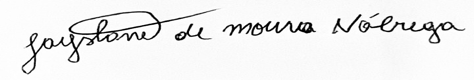 Gayslane de moura Nóbrega